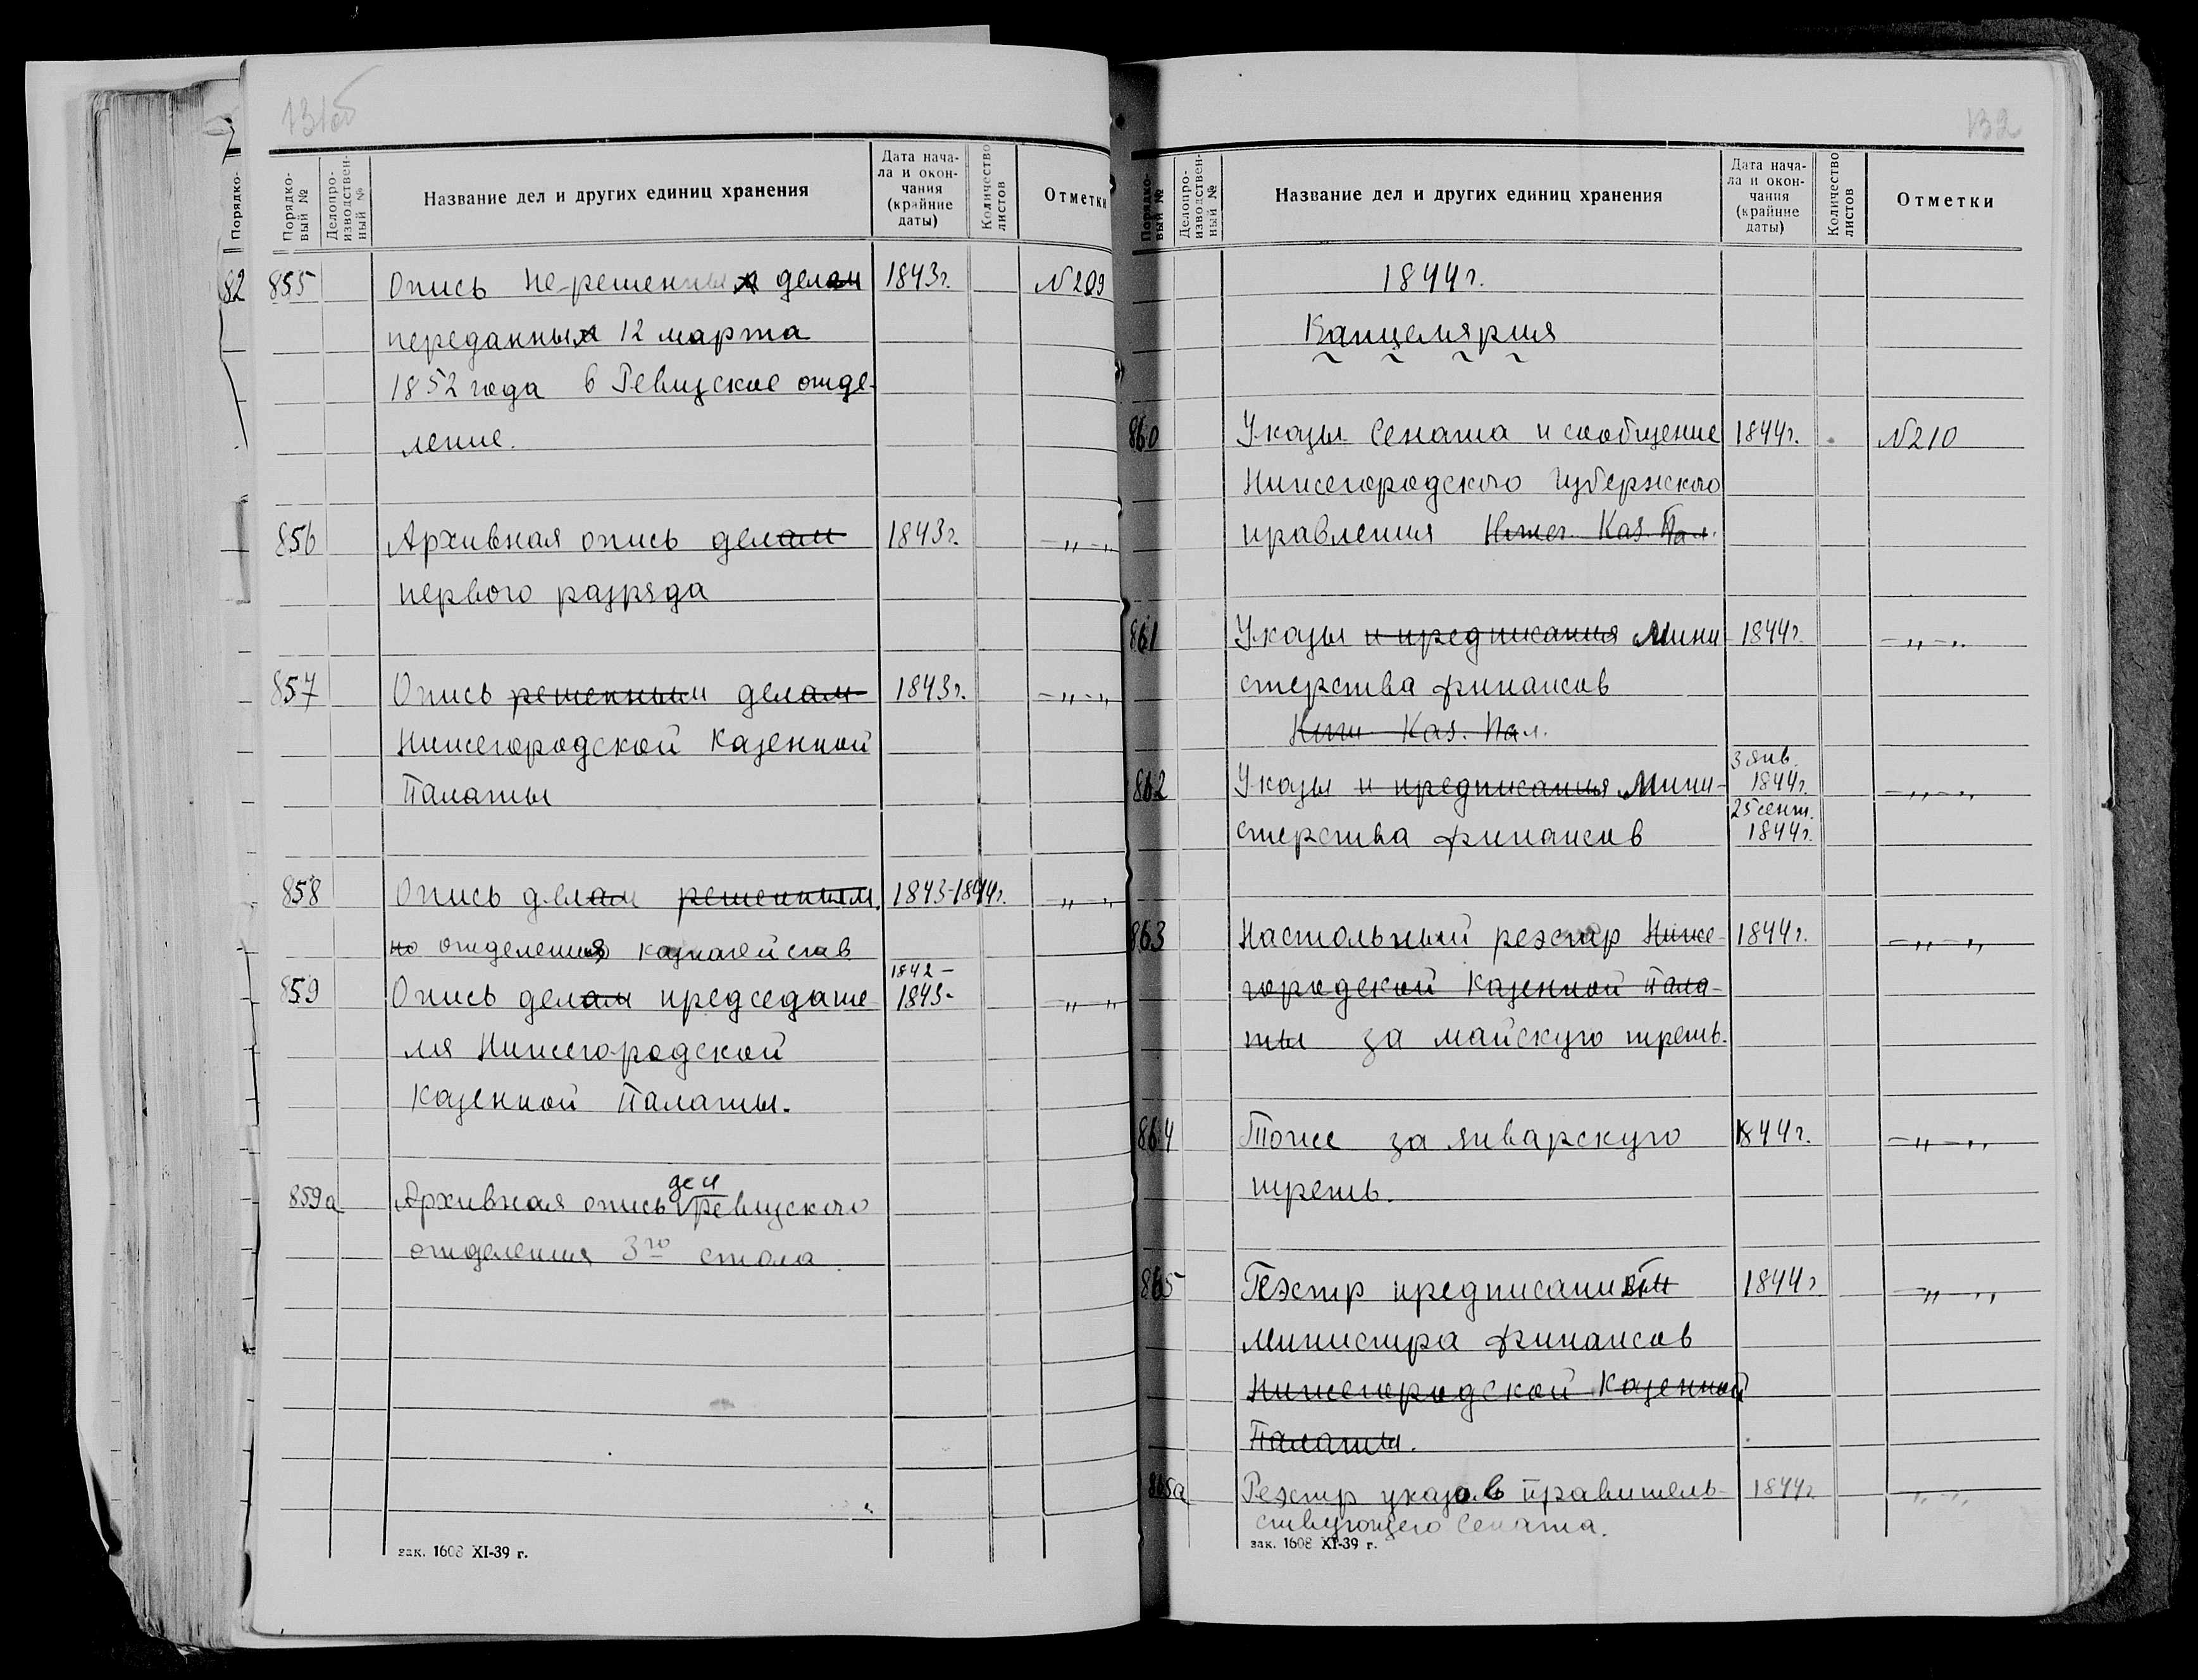 131об
Порядко-
Порядко-
вый №
Делопро-
изводствен-
ный №
Название дел и других единиц хранения
Дата нача-
ла и окон-
чания
(крайние
даты)
Количество
листов
Отметки
82 855 Опись нерешенных делам 1843г. №209
переданных 12 марта
1852 года в Ревизское отде-
ление.
856 Архивная опись делам 1843г. -„-„
первого разряда
857 Опись решенным делам 1843г. -„-„
Нижегородской Казенной
Палаты
858 Опись делам решенным. 1843-1844г. -„-„
но отделения казначейств
1842 –
859 Опись делам председате- 1843- -„-„
ля Нижегородской
Казенной Палаты.
дел
859а Архивная опись Ревизского
отделения 3го стола.
зак. 1608 XI-39 г.
132
Порядко-
вый №
Делопро-
изводствен-
ный №
Название дел и других единиц хранения
Дата нача-
ла и окон-
чания
(крайние
даты)
Количество
листов
Отметки
1844г.
Канцелярия
860 Указы Сената и сообщение 1844г. №210
Нижегородского губернского
правления Нижег. Каз. Пал.
861 Указы и предписания Мини- 1844г. -„-„
стерства финансов
Каз. Пал.
3 янв.
862 Указы и предписания Мини- 1844г. -„-„
25 сент.
стерства финансов 1844г.
863 Настольный реэстр Ниже- 1844г. -„-„
городской Казенной Пала-
ты за майскую треть.
864 Тоже за январскую 1844г. -„-„
треть.
865 Реэстр предписаниям 1844г -„-„
Министра финансов
Нижегородской Казенной
Палаты.
865а Реэстр указов Правитель- 1844г. -„-„
ствующего Сената.
зак. 1608 XI-39 г.